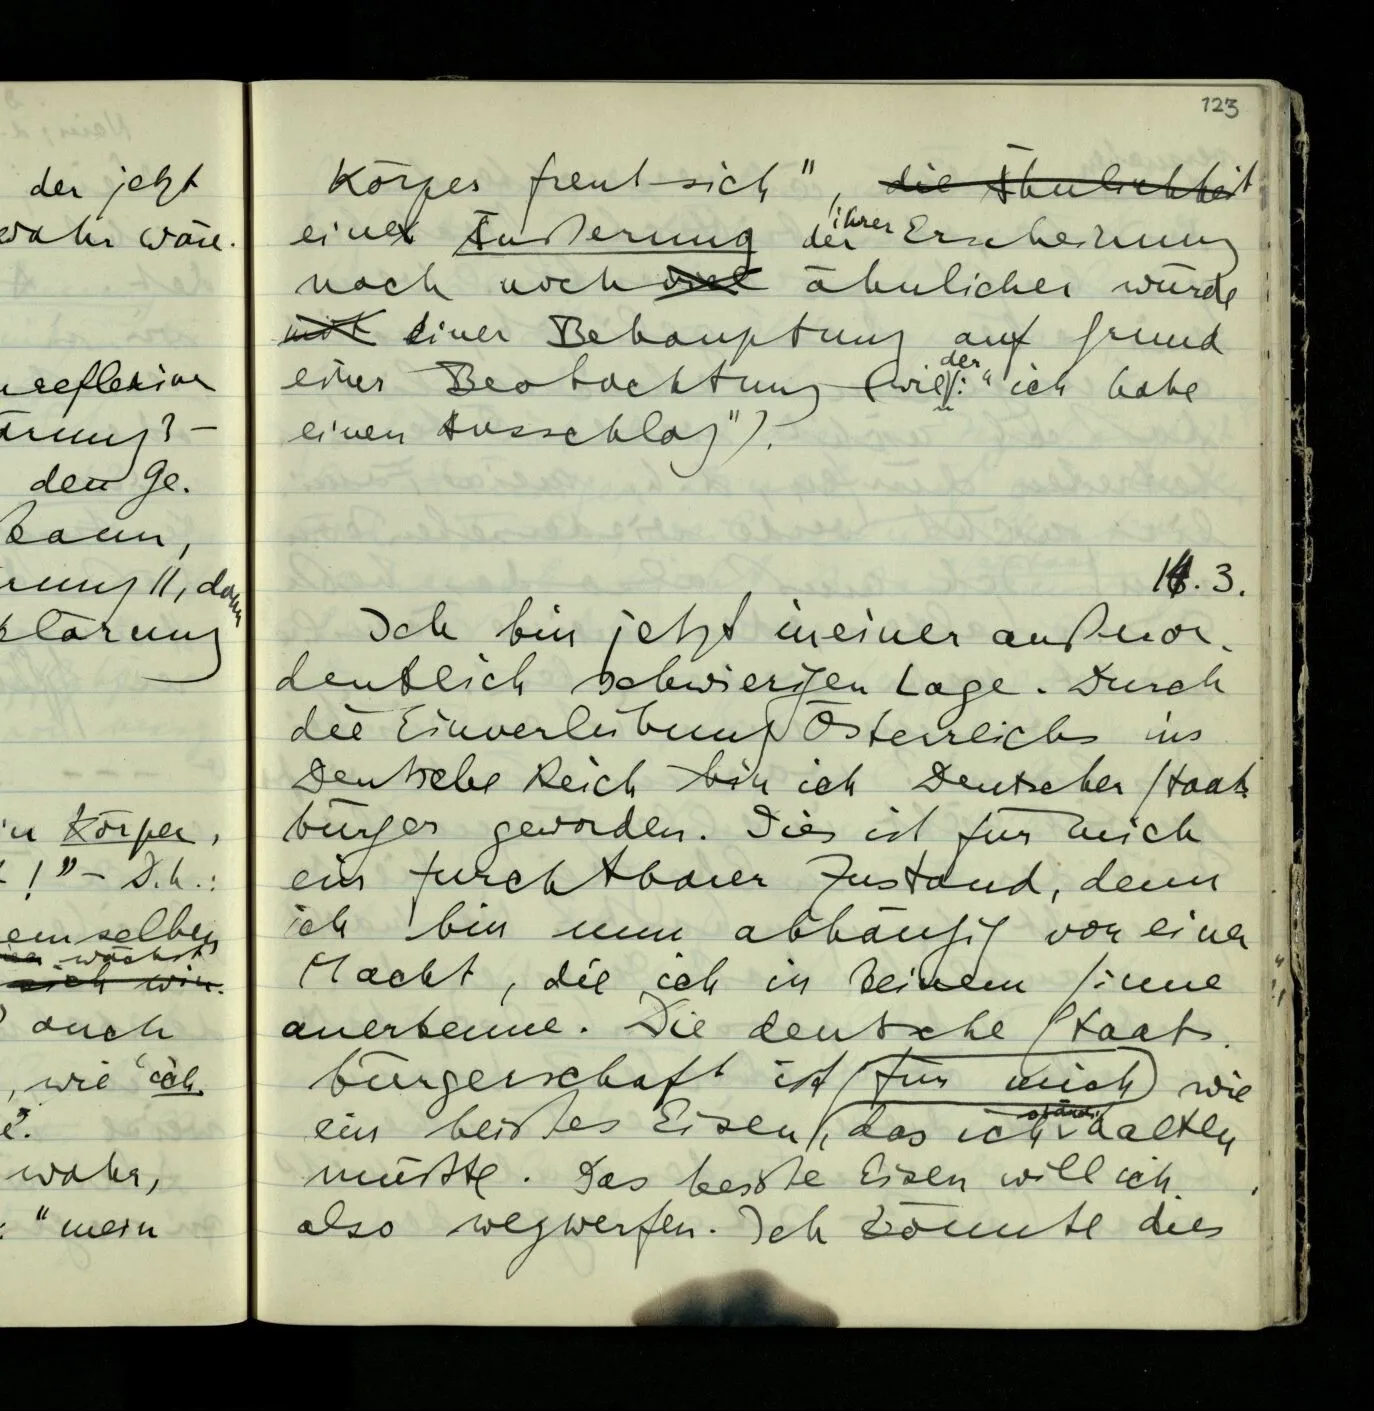 der jetzt
wahr wäre.
reflexion
den Ge.
kann,
klärung
Körper,
!" – D.h.:
demselben
wächst
sich
auch
, wie "ich
wahr,
"mein
123
Körper freut sich", die Ähnlichkeit
einer Äußerung der ihrer Erscheinung
nach noch viel ähnlicher würde
mit einer Behauptung auf Grund
einer Beobachtung (wie der: "ich habe
einen Ausschlag").
14. 3.
Ich bin jetzt in einer außeror-
dentlich schwierigen Lage. Durch
die Einverleibung Österreichs ins
Deutsche Reich bin ich Deutscher Staats
bürger geworden. Dies ist für mich
ein furchtbarer Zustand, denn
ich bin nun abhängig von einer
Macht, die ich in keinem Sinne
anerkenne. Die deutsche Staats-
bürgerschaft ist (für mich) wie
ein heißes Eisen, das ich ständig halten
müßte. Das heiße Eisen will ich
also wegwerfen. Ich könnte dies